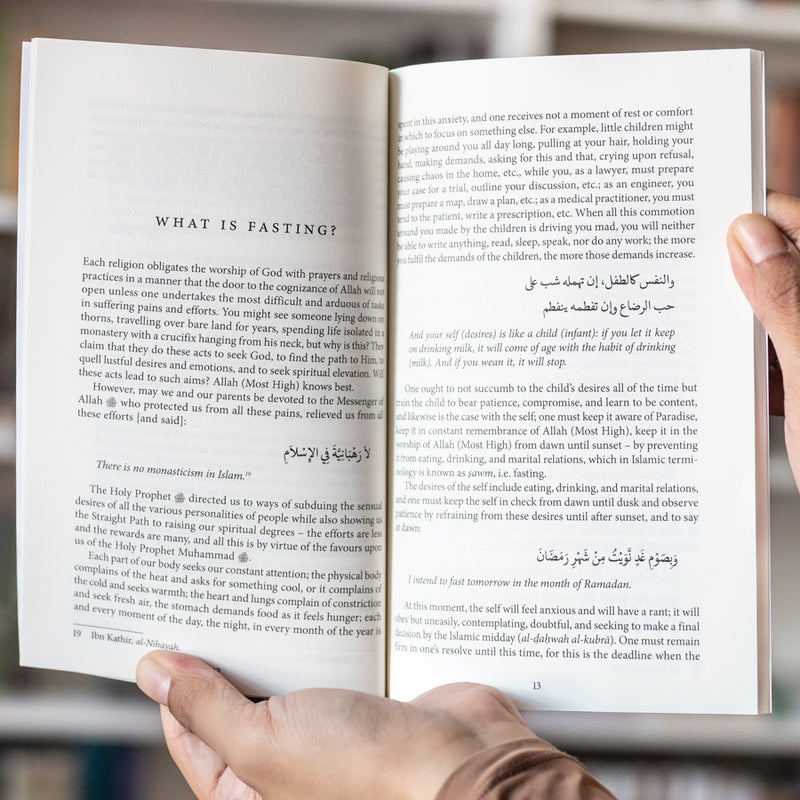 WHAT IS FASTING?
Each religion obligates the worship of God with prayers and religious
practices in a manner that the door to the cognizance of Allah will not
open unless one undertakes the most difficult and arduous of tasks
in suffering pains and efforts. You might see someone lying down on
thorns, travelling over bare land for years, spending life isolated in a
monastery with a crucifix hanging from his neck, but why is this? They
claim that they do these acts to seek God, to find the path to Him, to
quell lustful desires and emotions, and to seek spiritual elevation. Will
these acts lead to such aims? Allah (Most High) knows best.
However, may we and our parents be devoted to the Messenger of
Allah ﷺ who protected us from all these pains, relieved us from all
these efforts [and said]:
لاَ رَهْبَانِيَّةَ فِي الإِسْلَامِ
There is no monasticism in Islam.¹⁹
The Holy Prophet ﷺ directed us to ways of subduing the sensual
desires of all the various personalities of people while also showing us
the Straight Path to raising our spiritual degrees – the efforts are less
and the rewards are many, and all this is by virtue of the favours upon
us of the Holy Prophet Muhammad ﷺ.
Each part of our body seeks our constant attention; the physical body
complains of the heat and asks for something cool, or it complains of
the cold and seeks warmth; the heart and lungs complain of constriction
and seek fresh air, the stomach demands food as it feels hunger; each
and every moment of the day, the night, in every month of the year is
19 Ibn Kathir, al-Nihayah.
spent in this anxiety, and one receives not a moment of rest or comfort
in which to focus on something else. For example, little children might
be playing around you all day long, pulling at your hair, holding your
hand, making demands, asking for this and that, crying upon refusal,
causing chaos in the home, etc., while you, as a lawyer, must prepare
your case for a trial, outline your discussion, etc.; as an engineer, you
must prepare a map, draw a plan, etc.; as a medical practitioner, you must
tend to the patient, write a prescription, etc. When all this commotion
around you made by the children is driving you mad, you will neither
be able to write anything, read, sleep, speak, nor do any work; the more
you fulfil the demands of the children, the more those demands increase.
والنفس كالطفل، إن تهمله شب على
حب الرضاع وإن تفطمه ينفطم
And your self (desires) is like a child (infant): if you let it keep
on drinking milk, it will come of age with the habit of drinking
(milk). And if you wean it, it will stop.
One ought to not succumb to the child's desires all of the time but
train the child to bear patience, compromise, and learn to be content,
and likewise is the case with the self; one must keep it aware of Paradise,
keep it in constant remembrance of Allah (Most High), keep it in the
worship of Allah (Most High) from dawn until sunset – by preventing
it from eating, drinking, and marital relations, which in Islamic termi-
nology is known as ṣawm, i.e. fasting.
The desires of the self include eating, drinking, and marital relations,
and one must keep the self in check from dawn until dusk and observe
patience by refraining from these desires until after sunset, and to say
at dawn:
وَبِصَوْمِ غَدٍ نَّوَيْتُ مِنْ شَهْرِ رَمَضَانَ
I intend to fast tomorrow in the month of Ramadan.
At this moment, the self will feel anxious and will have a rant; it will
obey but uneasily, contemplating, doubtful, and seeking to make a final
decision by the Islamic midday (al-ḍaḥwah al-kubrā). One must remain
firm in one's resolve until this time, for this is the deadline when the
13